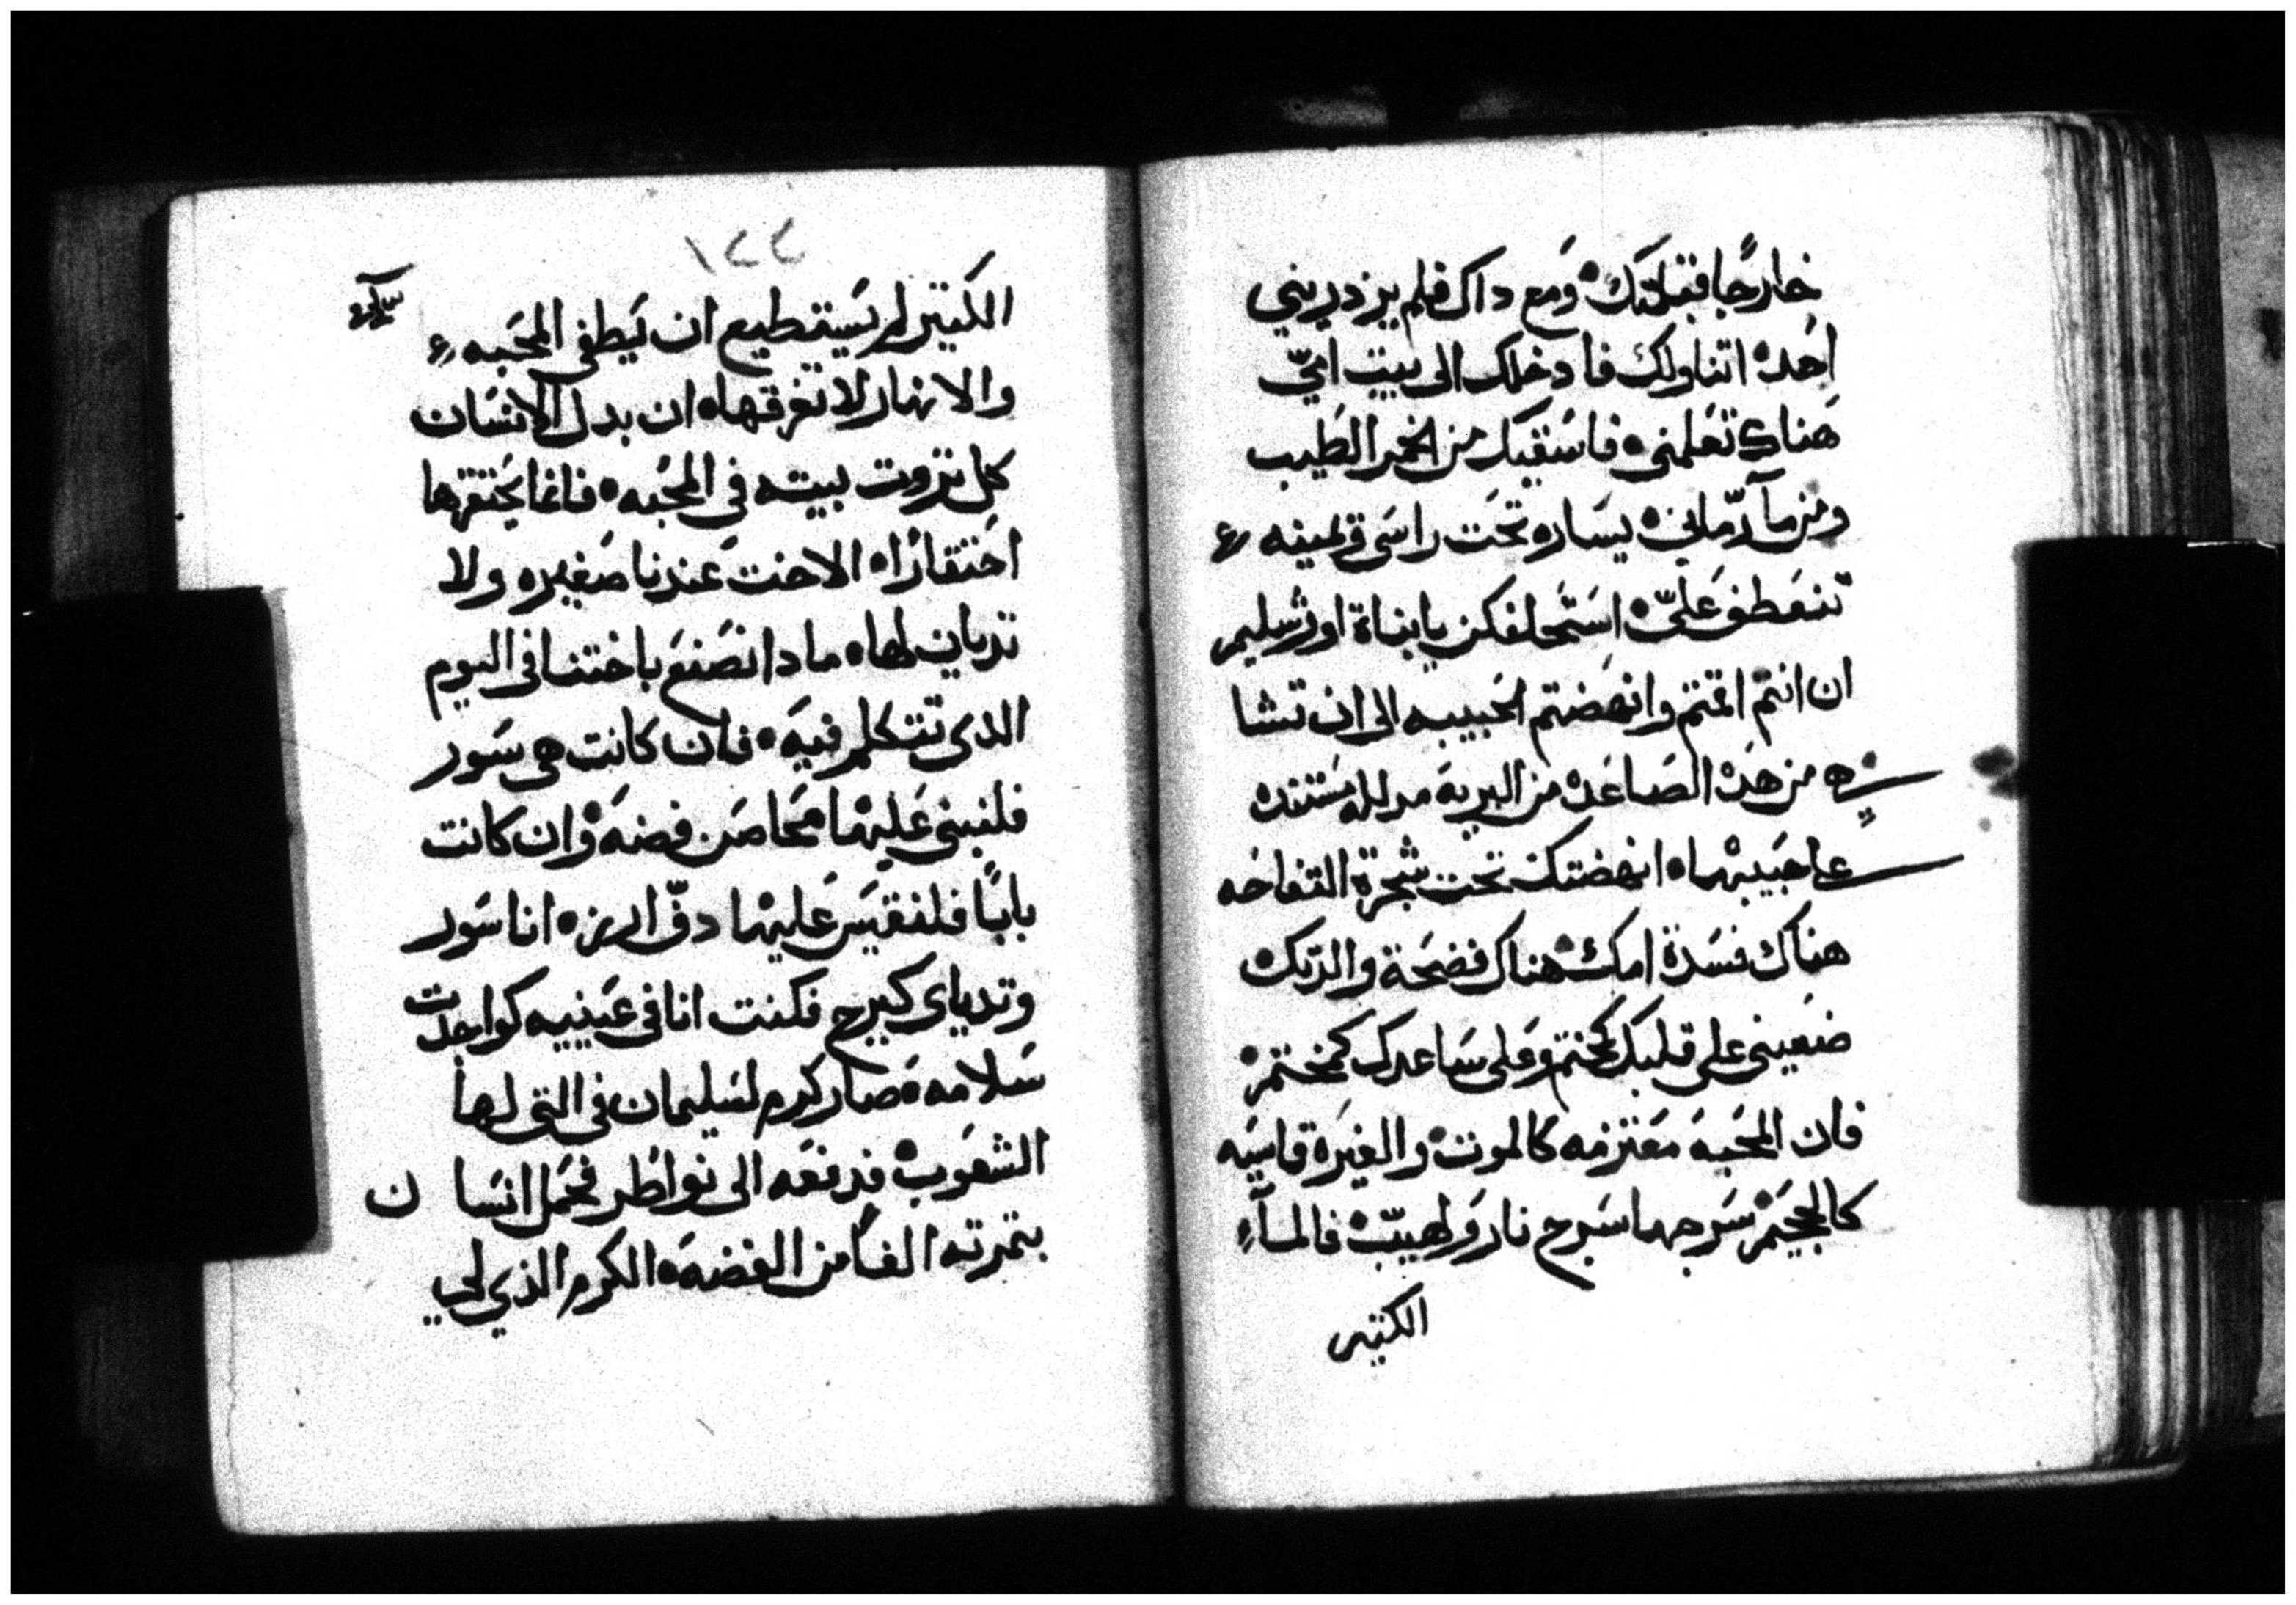 خارجًا فقبلتك ومع داك فلم يزدريني
احد اتناولك فادخلك الى بيت امي
هناك تعلمني فاسقيك من الخمر الطيب
ومن مآ رماني يساره تحت راسي ويمينه
تنعطف عليّ استحلفكن يا بناة اورشليم
ان انتم اقمتم وانهضتم الحبيبه الى ان تشا
من هده الصاعده من البريه مدلله مستنده
على حبيبها انهضتك تحت شجرة التفاحه
هناك فسدة امك هناك فضحة والدتك
ضعيني على قلبك كختم وعلى ساعدك كمختم
فان المحبه معتزمه كالموت والغيرة قاسيه
كالجحيم سرجها سرج نار ولهيب فالمآء
الكتير
١٢٢
الكتير لم يستطيع ان يطفي المحبه
والانهار لا تغرقها ان بدل الانسان
كل تروت بيته في المحبه فانما يحتقرها
احتقارًا الاخت عندنا صغيره ولا
تديان لها مادا نصنع باختنا في اليوم
الدي تتكلم فيه فان كانت هي سور
فلنبني عليها محاصن فضه وان كانت
بابًا فلنقيس عليها دفّ الارزه انا سور
وتدياي كبرج فكنت انا في عينيه كواجدت
سلامه صار كرم لسليمان في التي لها
الشعوب فدفعه الى نواطر فحمل انسان
بتمرته الفًا من الفضه الكرم الذي لي